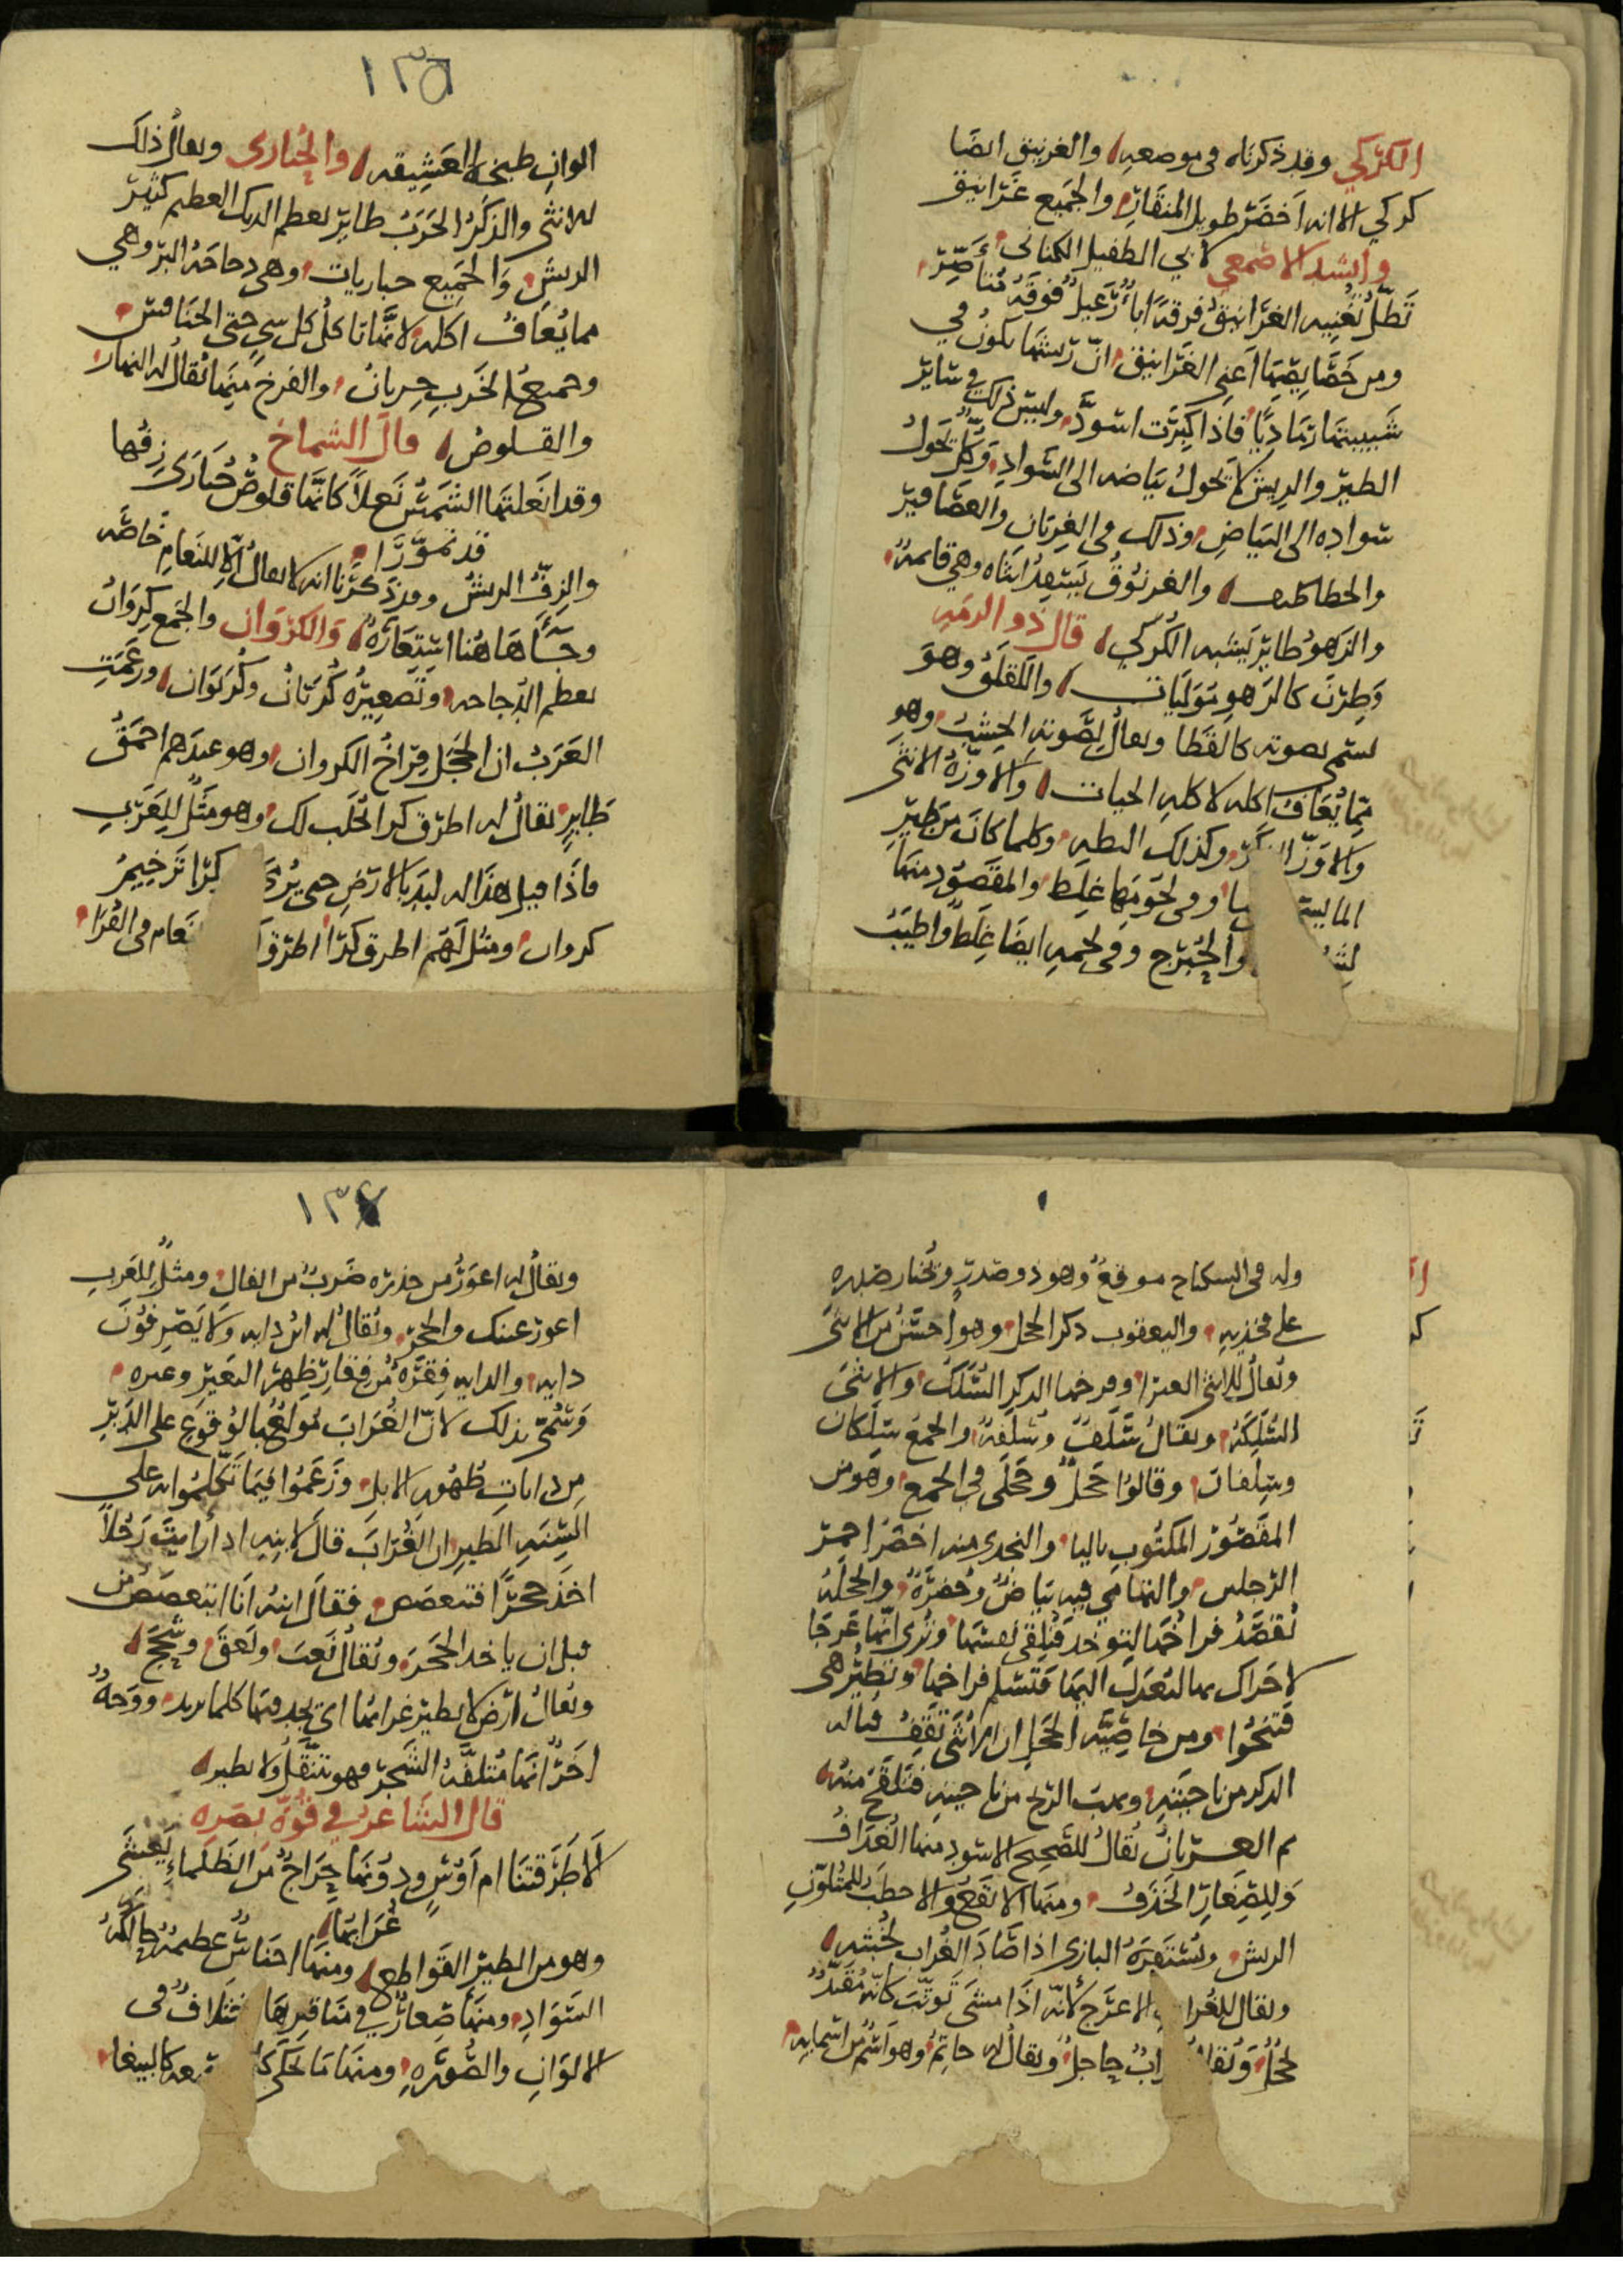 الكركي وقد ذكرناه في موضعه والغرنيق ايضا
كركي الا انه اخضر طويل المنقار والجميع غرانيق
وانشد الاصمعي لابي الطفيل الكناني
تظل تغنيه الغرانيق فرقه اباء وغيل فوقه متاصر
ومن خصايصها اعني الغرانيق ان ريشها يكون في
شبيبتها رماديا فاذا كبرت اسود وليس ذلك في ساير
الطير والريش لا يحول بياضه الى السواد ويحول
سواده الى البياض وذلك في الغربان والعصافير
والخطاطيف والغرنوق يسفد انثاه وهي قايمة
والرهو طاير يشبه الكركي قال ذو الرمه
وطرن كالرهو موليات واللقلق وهو
يسمى بصوته كالقطا ويقال لصوته وهو
مما يعاف اكله لاكله الحيات والاوزة الانثى
والاوز الذكر وكذلك البطه وكلما كان من طير
الما وفي لحومها غلظ والمقصود منها
والحبرج وفي لحمه ايضا غلظ واطيب
١٣٥
الوان طبخه العشيقه والحبارى ويقال ذلك
للانثى والذكر الخرب طاير بعظم الديك العظيم كثير
الريش والجميع حباريات وهي دجاجة البر وهي
مما يعاف اكله لانها تاكل كل شي حتى الخنافس
وجميع الخرب خربان والفرخ منها يقال له النهار
والقلوص قال الشماخ
وقد انعلتها الشمس نعلا كانها قلوص حبارى زفها
قد تمورا
والزف الريش وقد ذكرنا انه لا يقال الا للنعام خاصه
وجاها هنا استعاره والكروان والجمع كروان
بعظم الدجاجه وتصغيره كريان وكريوان وزعمت
العرب ان الحجل فراخ الكروان وهو عندهم احمق
طاير يقال له اطرق كرا نحلب لك وهو مثل للعرب
فاذا قيل هذا له لبد بالارض حتى يرمى كرا ترخيم
كروان ومثل لهم اطرق كرا اطرق النعام في القرا
وله في السكباج موقع وهو ذو صدر ويختار ظهره
على فخذيه واليعقوب ذكر الحجل وهو احسن من الانثى
ويقال للانثى وفرخها الذكر السلك والانثى
السلكة ويقال سلف وسلفة والجمع سلكان
وسلفان وقالوا حجل وحجلى في الجمع وهو من
المقصور المكتوب باليا والنجدي منه اخضر احمر
الرجلين والتهامي فيه بياض وخضرة والحجلة
تقصد فراخها لتوخذ فتلقي نفسها وتري انها عرجا
لا حراك بها لتعدل اليها فتسلم فراخها وتطير هي
فتنجوا ومن خاصية الحجل ان الانثى تقف قباله
الذكر من ناحيته ويهب الريح من ناحيته فتلقح منه
ثم الغربان يقال للضخم الاسود منها الغداف
وللصغار الحذف ومنها الابقع والاخطب للمتلون
الريش ويستقره البازي اذا صاد الغراب لخبثه
ويقال للغراب الاعرج لانه اذا مشى توثب كانه مقيد
لحجل ويقال غراب حاجل ويقال له حاتم وهو اسم من اسمايه
١٣٦
ويقال له اعور من حذره ضرب من الفال ومثل للعرب
اعور عينك والحجر ويقال له ابن دايه ولا يصرفون
دايه والدايه فقرة من فقار ظهر البعير وغيره
وسمي بذلك لان الغراب مولع بالوقوع على الدبر
من دايات ظهور الابل وزعموا فيما تكلموا به على
السنه الطير ان الغراب قال لابنه اذا رايت رجلا
اخذ حجرا فتعصص فقال ابنه انا اتعصص من
قبل ان ياخذ الحجر ويقال نعب ونعق وشحج
ويقال ارض لا يطير غرابها اي يجد فيها كلما يريد ووجه
اخر انها ملتفة الشجر فهو يتنقل ولا يطير
قال الشاعر في قوة بصره
الا طرقتنا ام اوس ودونها حراج من الظلماء يعشى
غرابها
وهو من الطير القواطع ومنها اجناس عظيمة حالكة
السواد ومنها صغار في مناقيرها اختلاف في
الالوان والصورة ومنها ما يحكي كالببغا